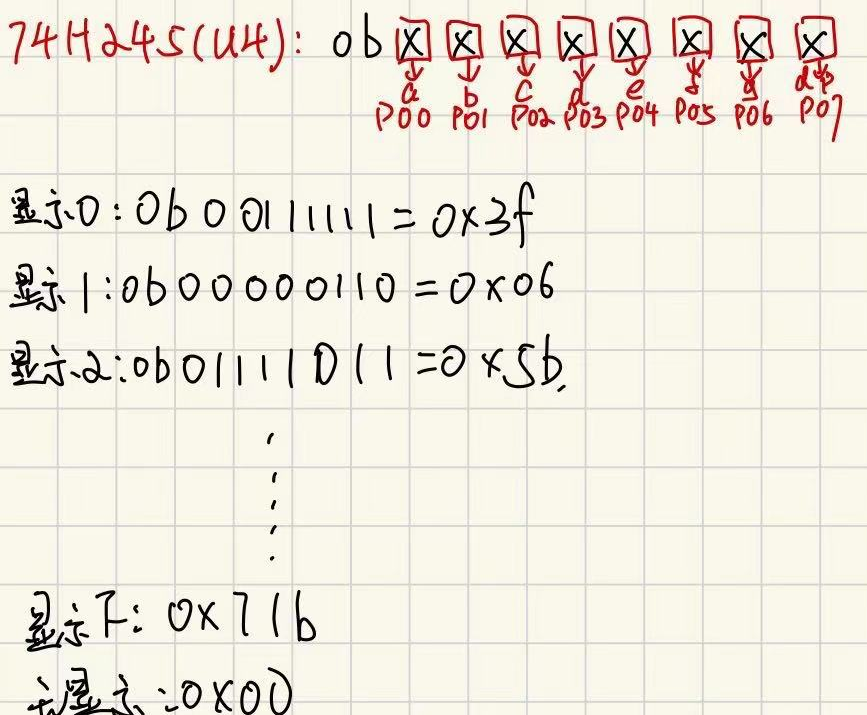 74H245(U4): 0b X X X X X X X X
a b c d e f g dp
P00 P01 P02 P03 P04 P05 P06 P07
显示0:0b00111111=0x3f
显示1:0b00000110=0x06
显示2:0b01111011=0x5b
显示F:0x71b
无显示:0x00